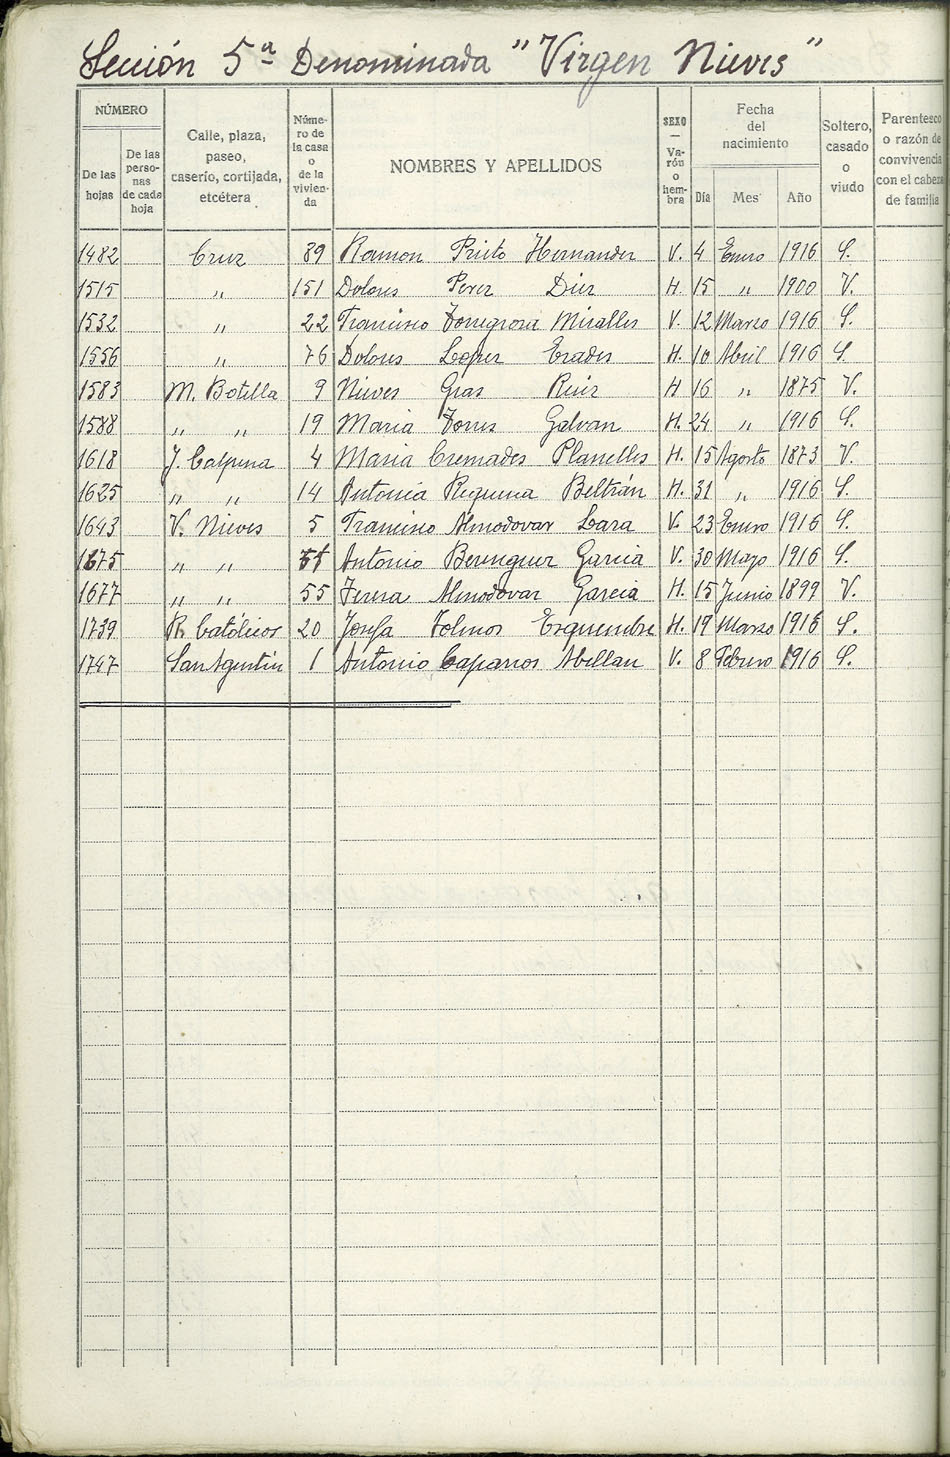 Sección 5ª Denominada "Virgen Nieves"
NÚMERO
De las hojas
De las perso-nas de cada hoja
Calle, plaza, paseo, caserío, cortijada, etcétera
Núme-ro de la casa o de la vivien-da
NOMBRES Y APELLIDOS
SEXO — Va-rón o hem-bra
Fecha del nacimiento
Día Mes Año
Soltero, casado o viudo
Parentesco o razón de convivencia con el cabeza de familia
1482 Cruz 89 Ramon Prieto Hernandez V. 4 Enero 1916 S.
1515 " 151 Dolores Perez Diez H. 15 " 1900 V.
1532 " 22 Francisco Torregrosa Miralles V. 12 Marzo 1916 S.
1556 " 76 Dolores Lopez Erades H. 10 Abril 1916 S.
1583 M. Botella 9 Nieves Gras Ruiz H 16 " 1875 V.
1588 " " 19 Maria Torres Galvan H. 24 " 1916 S.
1618 J. Calpena 4 Maria Cremades Planelles H. 15 Agosto 1873 V.
1625 " " 14 Antonia Requena Beltrán H. 31 " 1916 S.
1643 V. Nieves 5 Francisco Almodovar Lara V. 23 Enero 1916 S.
1675 " " Antonio Berenguer Garcia V. 30 Mayo 1916 S.
1677 " " 55 Teresa Almodovar Garcia H. 15 Junio 1899 V.
1739 R. Católicos 20 Josefa Tolmos Esquembre H. 19 Marzo 1916 S.
1747 San Agustin 1 Antonio Caparros Abellan V. 8 Febrero 1916 S.